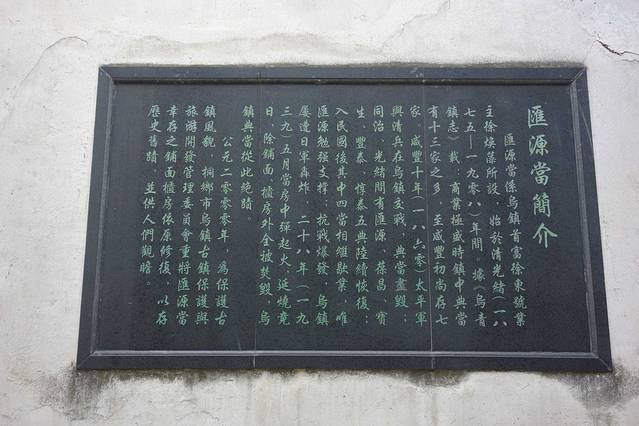 匯源當簡介
匯源當係烏鎮首富徐東號業
主徐煥藻所設，始於清光緒(一八
七五—一九零八)年間。據《烏青
鎮志》載：商業極盛時鎮中典當
有十三家之多，至咸豐初尚存七
家。咸豐十年(一八六零)太平軍
與清兵在烏鎮交戰，典當盡毀；
同治、光緒間有匯源、葆昌、寶
生、豐泰、惇泰五典陸續恢復；
入民國後其中四當相繼歇業，唯
匯源勉强支撐；抗戰爆發，烏鎮
屢遭日軍轟炸，二十八年(一九
三九)五月當房中彈起火、延燒竟
日，除鋪面、櫃房外全被焚毀，烏
鎮典當從此絶蹟。
公元二零零零年，為保護古
鎮風貌，桐鄉市烏鎮古鎮保護與
旅游開發管理委員會重將匯源當
幸存之鋪面櫃房依原修復，以存
歷史舊蹟，並供人們觀瞻。